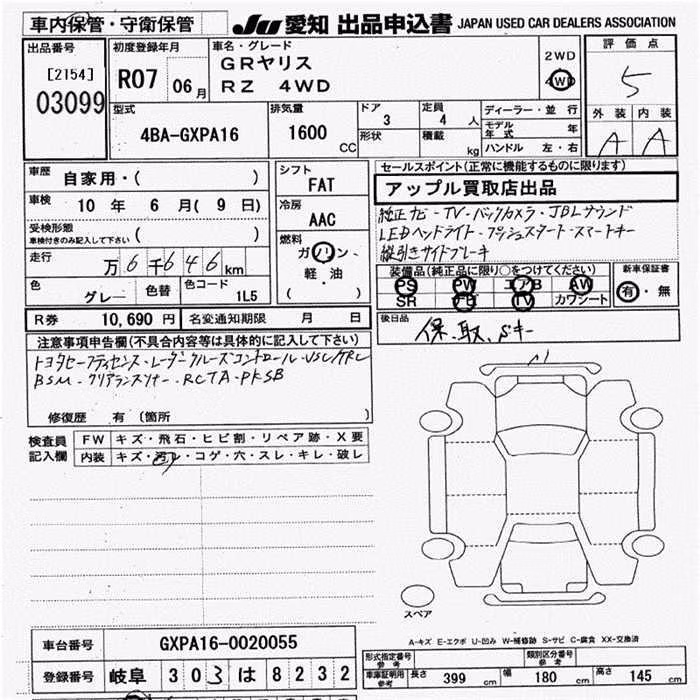 車内保管・守衛保管
JU 愛知 出品申込書 JAPAN USED CAR DEALERS ASSOCIATION
出品番号
[2154]
03099
初度登録年月
R07 06月
車名・グレード
GRヤリス
RZ 4WD
2WD
4WD
評価点
5
外装 内装
A A
型式
4BA-GXPA16
排気量
1600 CC
ドア
3
形状
定員
4 人
積載
kg
ディーラー・並行
モデル年式 年
ハンドル 左・右
車歴 自家用・( )
車検 10 年 6 月 ( 9 日)
受検形態
車検付きのみ記入して下さい ( )
走行 万 6 千 6 4 6 km
色 グレー 色替 色コード 1L5
シフト
FAT
冷房
AAC
燃料
ガソリン
軽・油
( )
セールスポイント(正常に機能するものに限ります)
アップル買取店出品
純正ナビ-TV-バックカメラ・JBLサウンド
LEDヘッドライト-プッシュスタート-スマートキー
縦引きサイドブレーキ
装備品(純正品に限り○をつけてください)
PS PW エアB AW
SR ナビ TV カワシート
新車保証書
有・無
R券 10,690 円 名変通知期限 月 日
後日品
保、取、Sキー
注意事項申告欄(不具合内容等は具体的に記入して下さい)
トヨタセーフティセンス・レーダークルーズコントロール-VSC/TRC
BSM・クリアランスソナー・RCTA-PKSB
修復歴 有(箇所 )
検査員記入欄
FW キズ・飛石・ヒビ割・リペア跡・X要
内装 キズ・汚レ・コゲ・穴・スレ・キレ・破レ
スペア
A-キズ E-エクボ U-凹み W-補修跡 S-サビ C-腐食 XX-交換済
車台番号 GXPA16-0020055
登録番号 岐阜 303 は 8232
形式指定番号 参考
類別区分番号 参考
車庫証明用参考 長さ 399 cm 幅 180 cm 高さ 145 cm